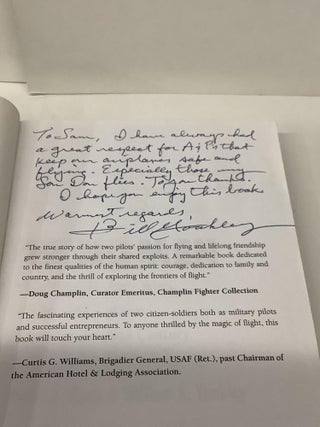 To Sam, I have always had
a great respect for A&Ps that
keep our airplanes safe and
flying. Especially those my
Son Don flies. To you thanks.
I hope you enjoy this book
Warmest regards,
Bill
"The true story of how two pilots' passion for flying and lifelong friendship
grew stronger through their shared exploits. A remarkable book dedicated
to the finest qualities of the human spirit: courage, dedication to family and
country, and the thrill of exploring the frontiers of flight."
—Doug Champlin, Curator Emeritus, Champlin Fighter Collection
"The fascinating experiences of two citizen-soldiers both as military pilots
and successful entrepreneurs. To anyone thrilled by the magic of flight, this
book will touch your heart."
—Curtis G. Williams, Brigadier General, USAF (Ret.), past Chairman of
the American Hotel & Lodging Association.